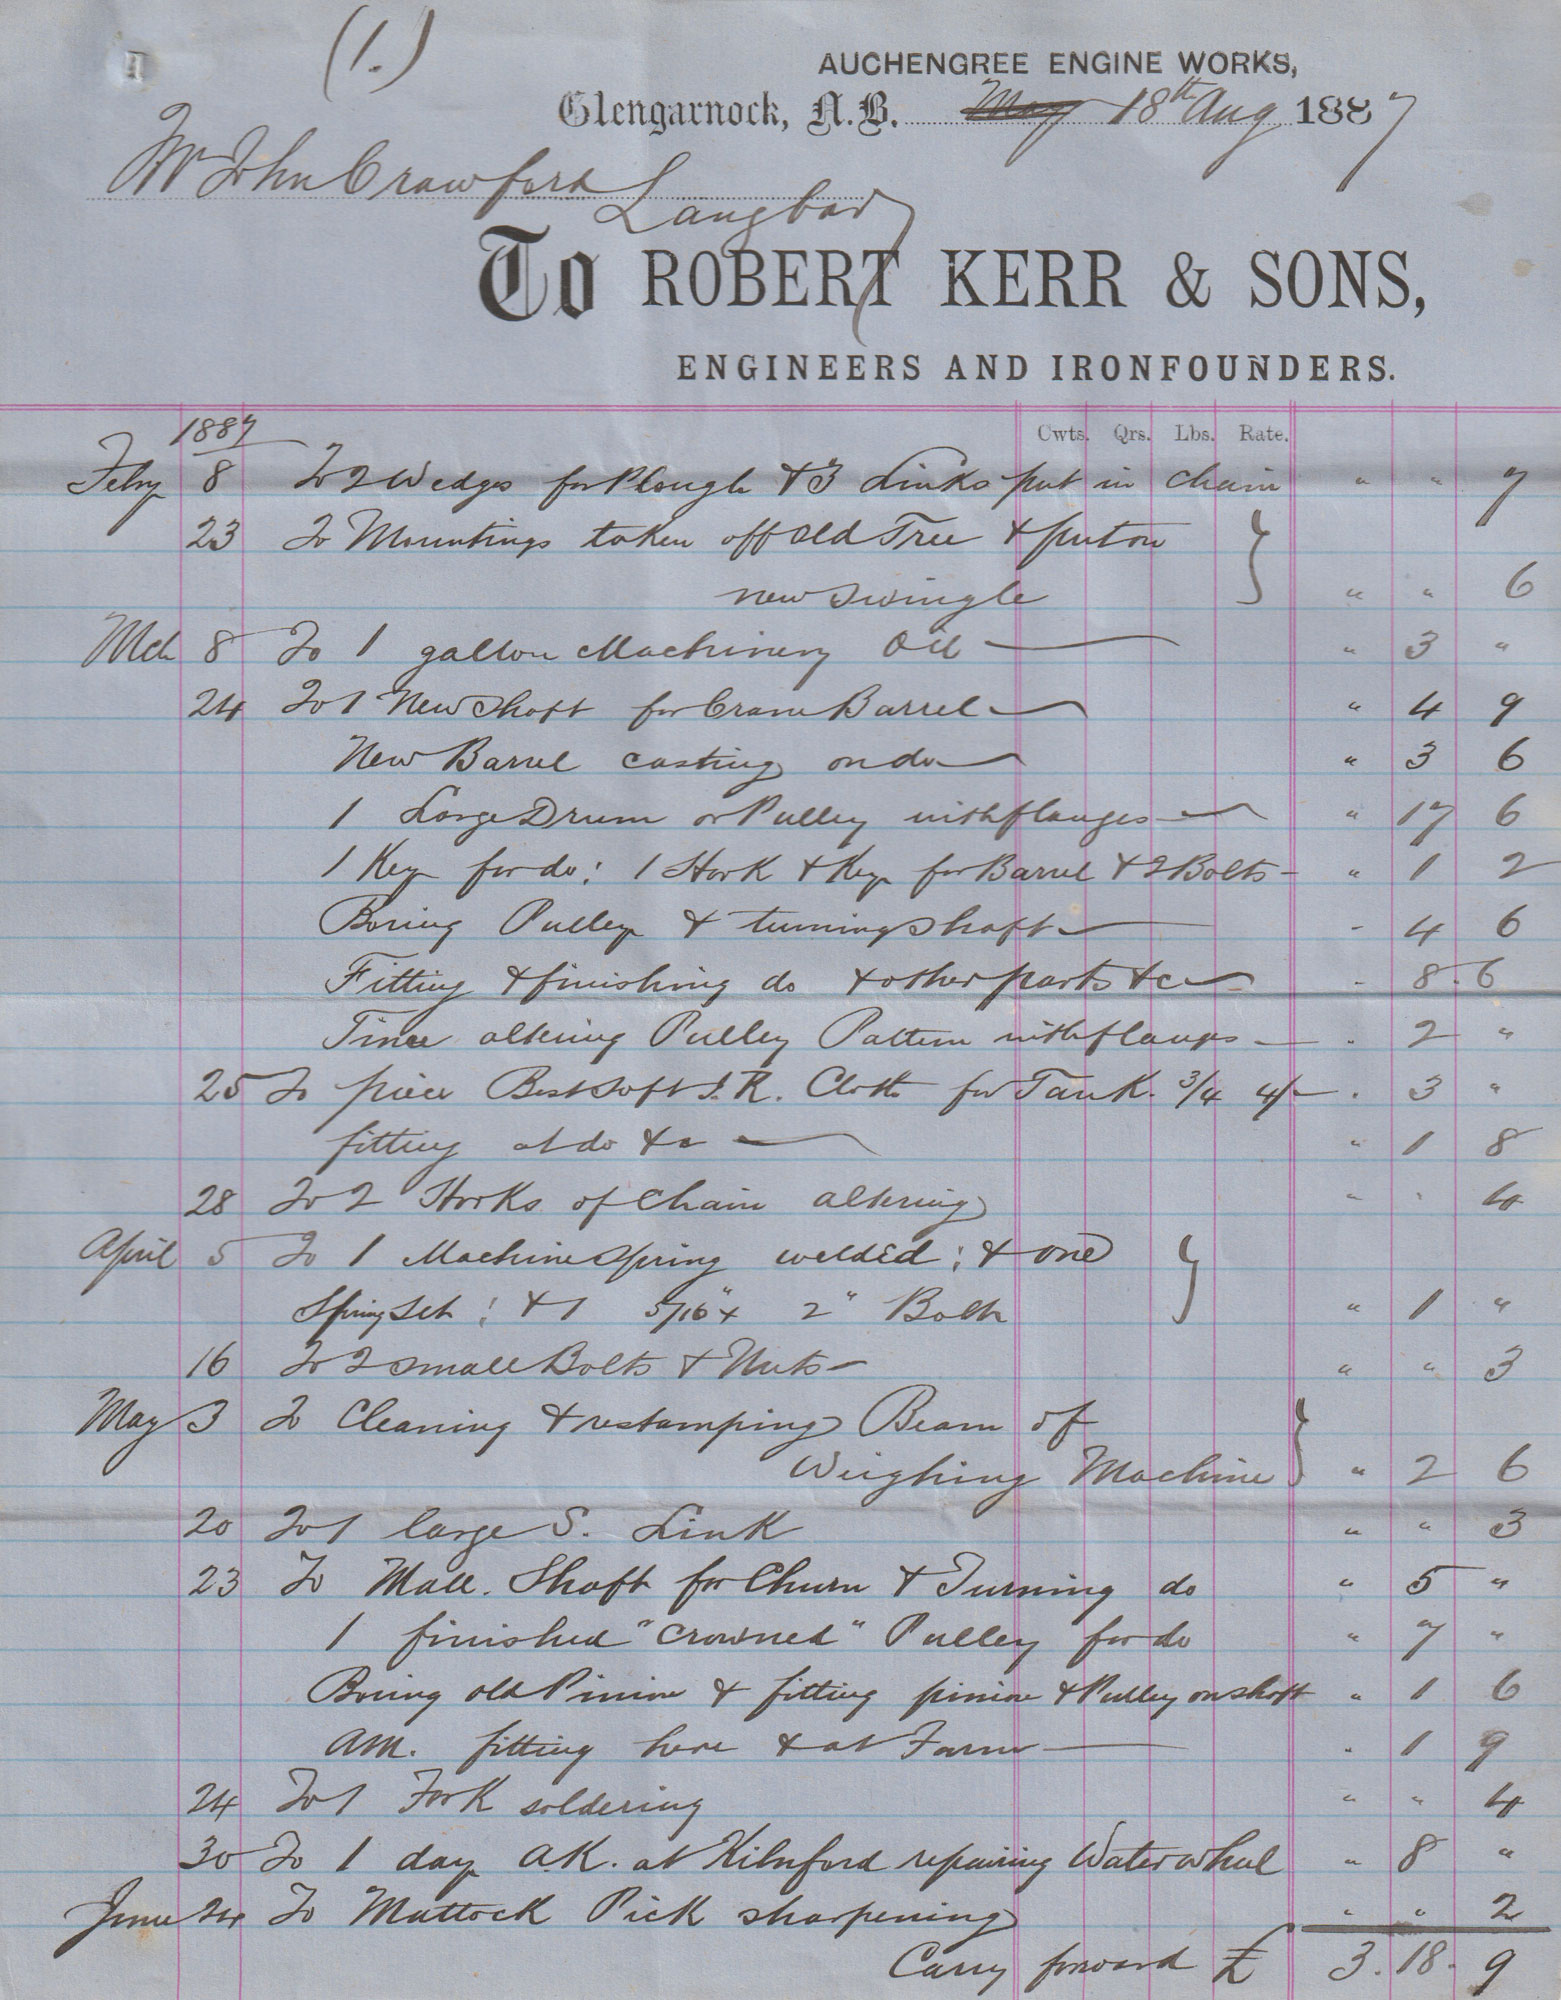 (1.)
AUCHENGREE ENGINE WORKS,
Glengarnock, N.B. May 18th Aug 1887
Mr John Crawford
Langbar
To ROBERT KERR & SONS,
ENGINEERS AND IRONFOUNDERS.
1887
Cwts. Qrs. Lbs. Rate.
Feby 8 To 2 Wedges for Plough & 3 Links put in chain " " 7
23 To Mountings taken off old Tree & put on
new swingle " " 6
Mch 8 To 1 gallon Machinery Oil " 3 "
24 To 1 New Shaft for Crane Barrel " 4 9
New Barrel casting on do " 3 6
1 Large Drum or Pulley with flanges " 17 6
1 Key for do; 1 Hook & Key for Barrel & 2 Bolts " 1 2
Boring Pulley & turning shaft - 4 6
Fitting & finishing do & other parts &c - 8 . 6
Time altering Pulley Pattern with flanges . 2 "
25 To piece Best Soft I.R. Cloth for Tank. 3/4 4/- . 3 "
fitting at do &c " 1 8
28 To 2 Hooks of Chain altering " " 4
April 5 To 1 Machine Spring welded; & one
Spring Set; & 1 5/16" x 2" Bolt " 1 "
16 To 2 small Bolts & Nuts " " 3
May 3 To Cleaning & restamping Beam of
Weighing Machine " 2 6
20 To 1 large S. Link " " 3
23 To Mall. Shaft for Churn & Turning do " 5 "
1 finished "crowned" Pulley for do " 7 "
Boring old Pinion & fitting pinion & Pulley on shaft " 1 6
AM. fitting here & at Farm . 1 9
24 To 1 Fork soldering " " 4
30 To 1 day A.K. at Kilnford repairing Waterwheel " 8 "
June 24 To Mattock Pick sharpening " " 2
Carry forward £ 3 . 18 . 9